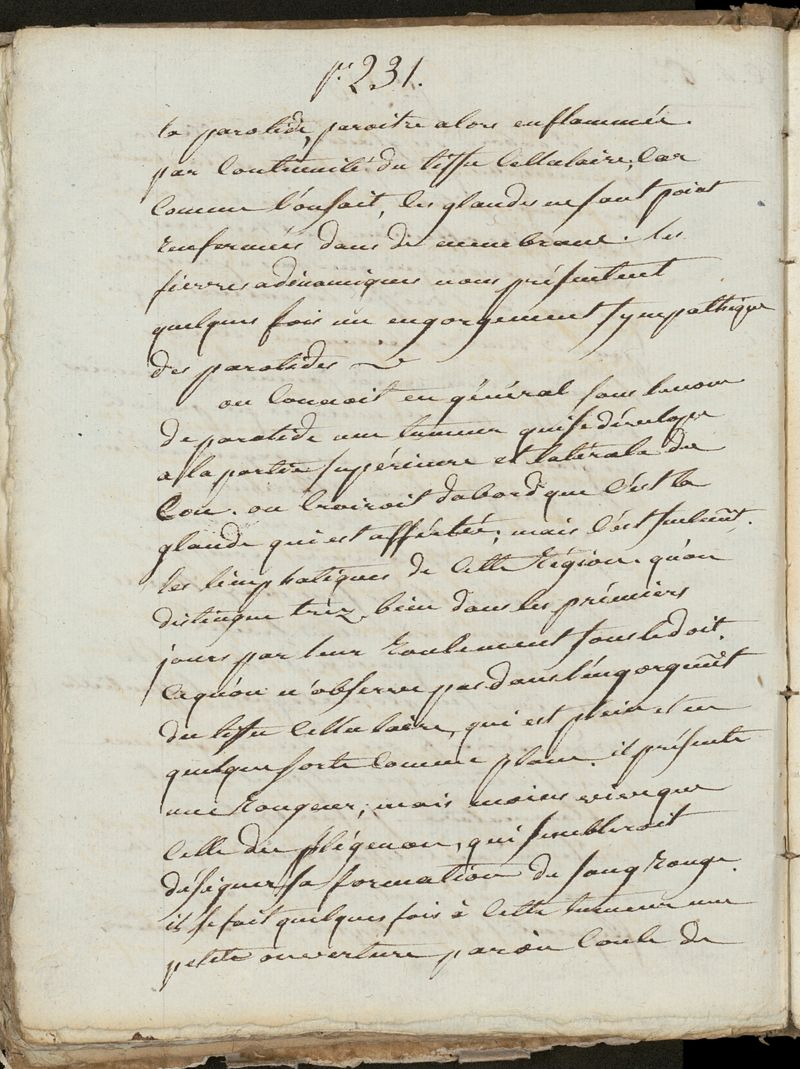 p. 231.
la parotide, paroitre alors enflammée.
par Continuité du tissu Cellulaire, Car
Comme l'on sait, les glandes ne sont point
renfermées dans de membrane. les
fievres adinamiques nous présentent
quelques fois un engorgement sympathique
des parotides
on Connoit en général sous le nom
de parotide une tumeur qui se développe
a la partie supérieure et latérale du
Cou. on Croiroit d'abord que C'est la
glande qui est afféctée; mais C'est seulemt.
les limphatiques de Cette Région. qu'on
distingue tréz bien dans les prémiers
jours par leur Roulement sous le doit.
Ce qu'on n'observe pas dans l'engorgemt
du tissu Cellulaire, qui est plein et en
quelque sorte Comme plane. il présente
une Rougeur; mais moins vive que
Celle du flégmon, qui sembleroit
désigner sa formation de sang Rouge.
il se fait quelques fois à Cette tumeur une
petite ouverture par ou Coule de